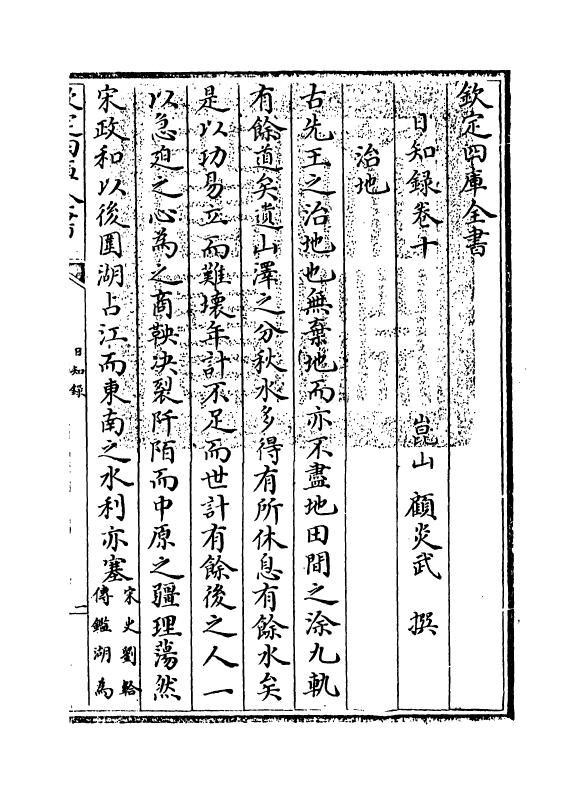 欽定四庫全書
日知録卷十
崑山 顧炎武 撰
治地
古先王之治地也無棄地而亦不盡地田間之涂九軌
有餘道矣遺山澤之分秋水多得有所休息有餘水矣
是以功易立而難壞年計不足而世計有餘後之人一
以急迫之心為之商鞅決裂阡陌而中原之疆理蕩然
宋政和以後圍湖占江而東南之水利亦塞
宋史劉韐
傳鑑湖為
日知録